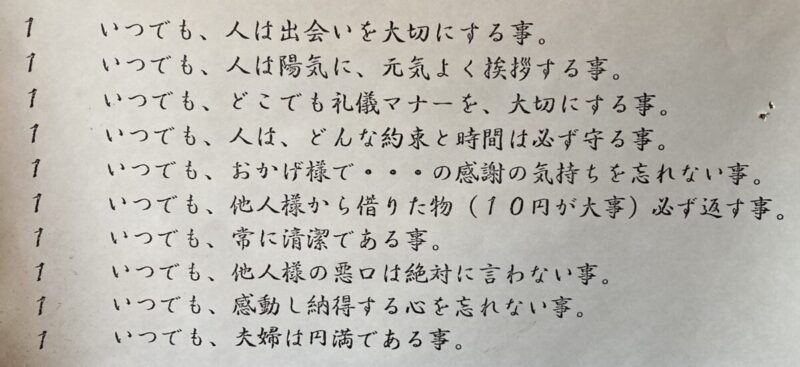 1 いつでも、人は出会いを大切にする事。
1 いつでも、人は陽気に、元気よく挨拶する事。
1 いつでも、どこでも礼儀マナーを、大切にする事。
1 いつでも、人は、どんな約束と時間は必ず守る事。
1 いつでも、おかげ様で・・・の感謝の気持ちを忘れない事。
1 いつでも、他人様から借りた物（１０円が大事）必ず返す事。
1 いつでも、常に清潔である事。
1 いつでも、他人様の悪口は絶対に言わない事。
1 いつでも、感動し納得する心を忘れない事。
1 いつでも、夫婦は円満である事。